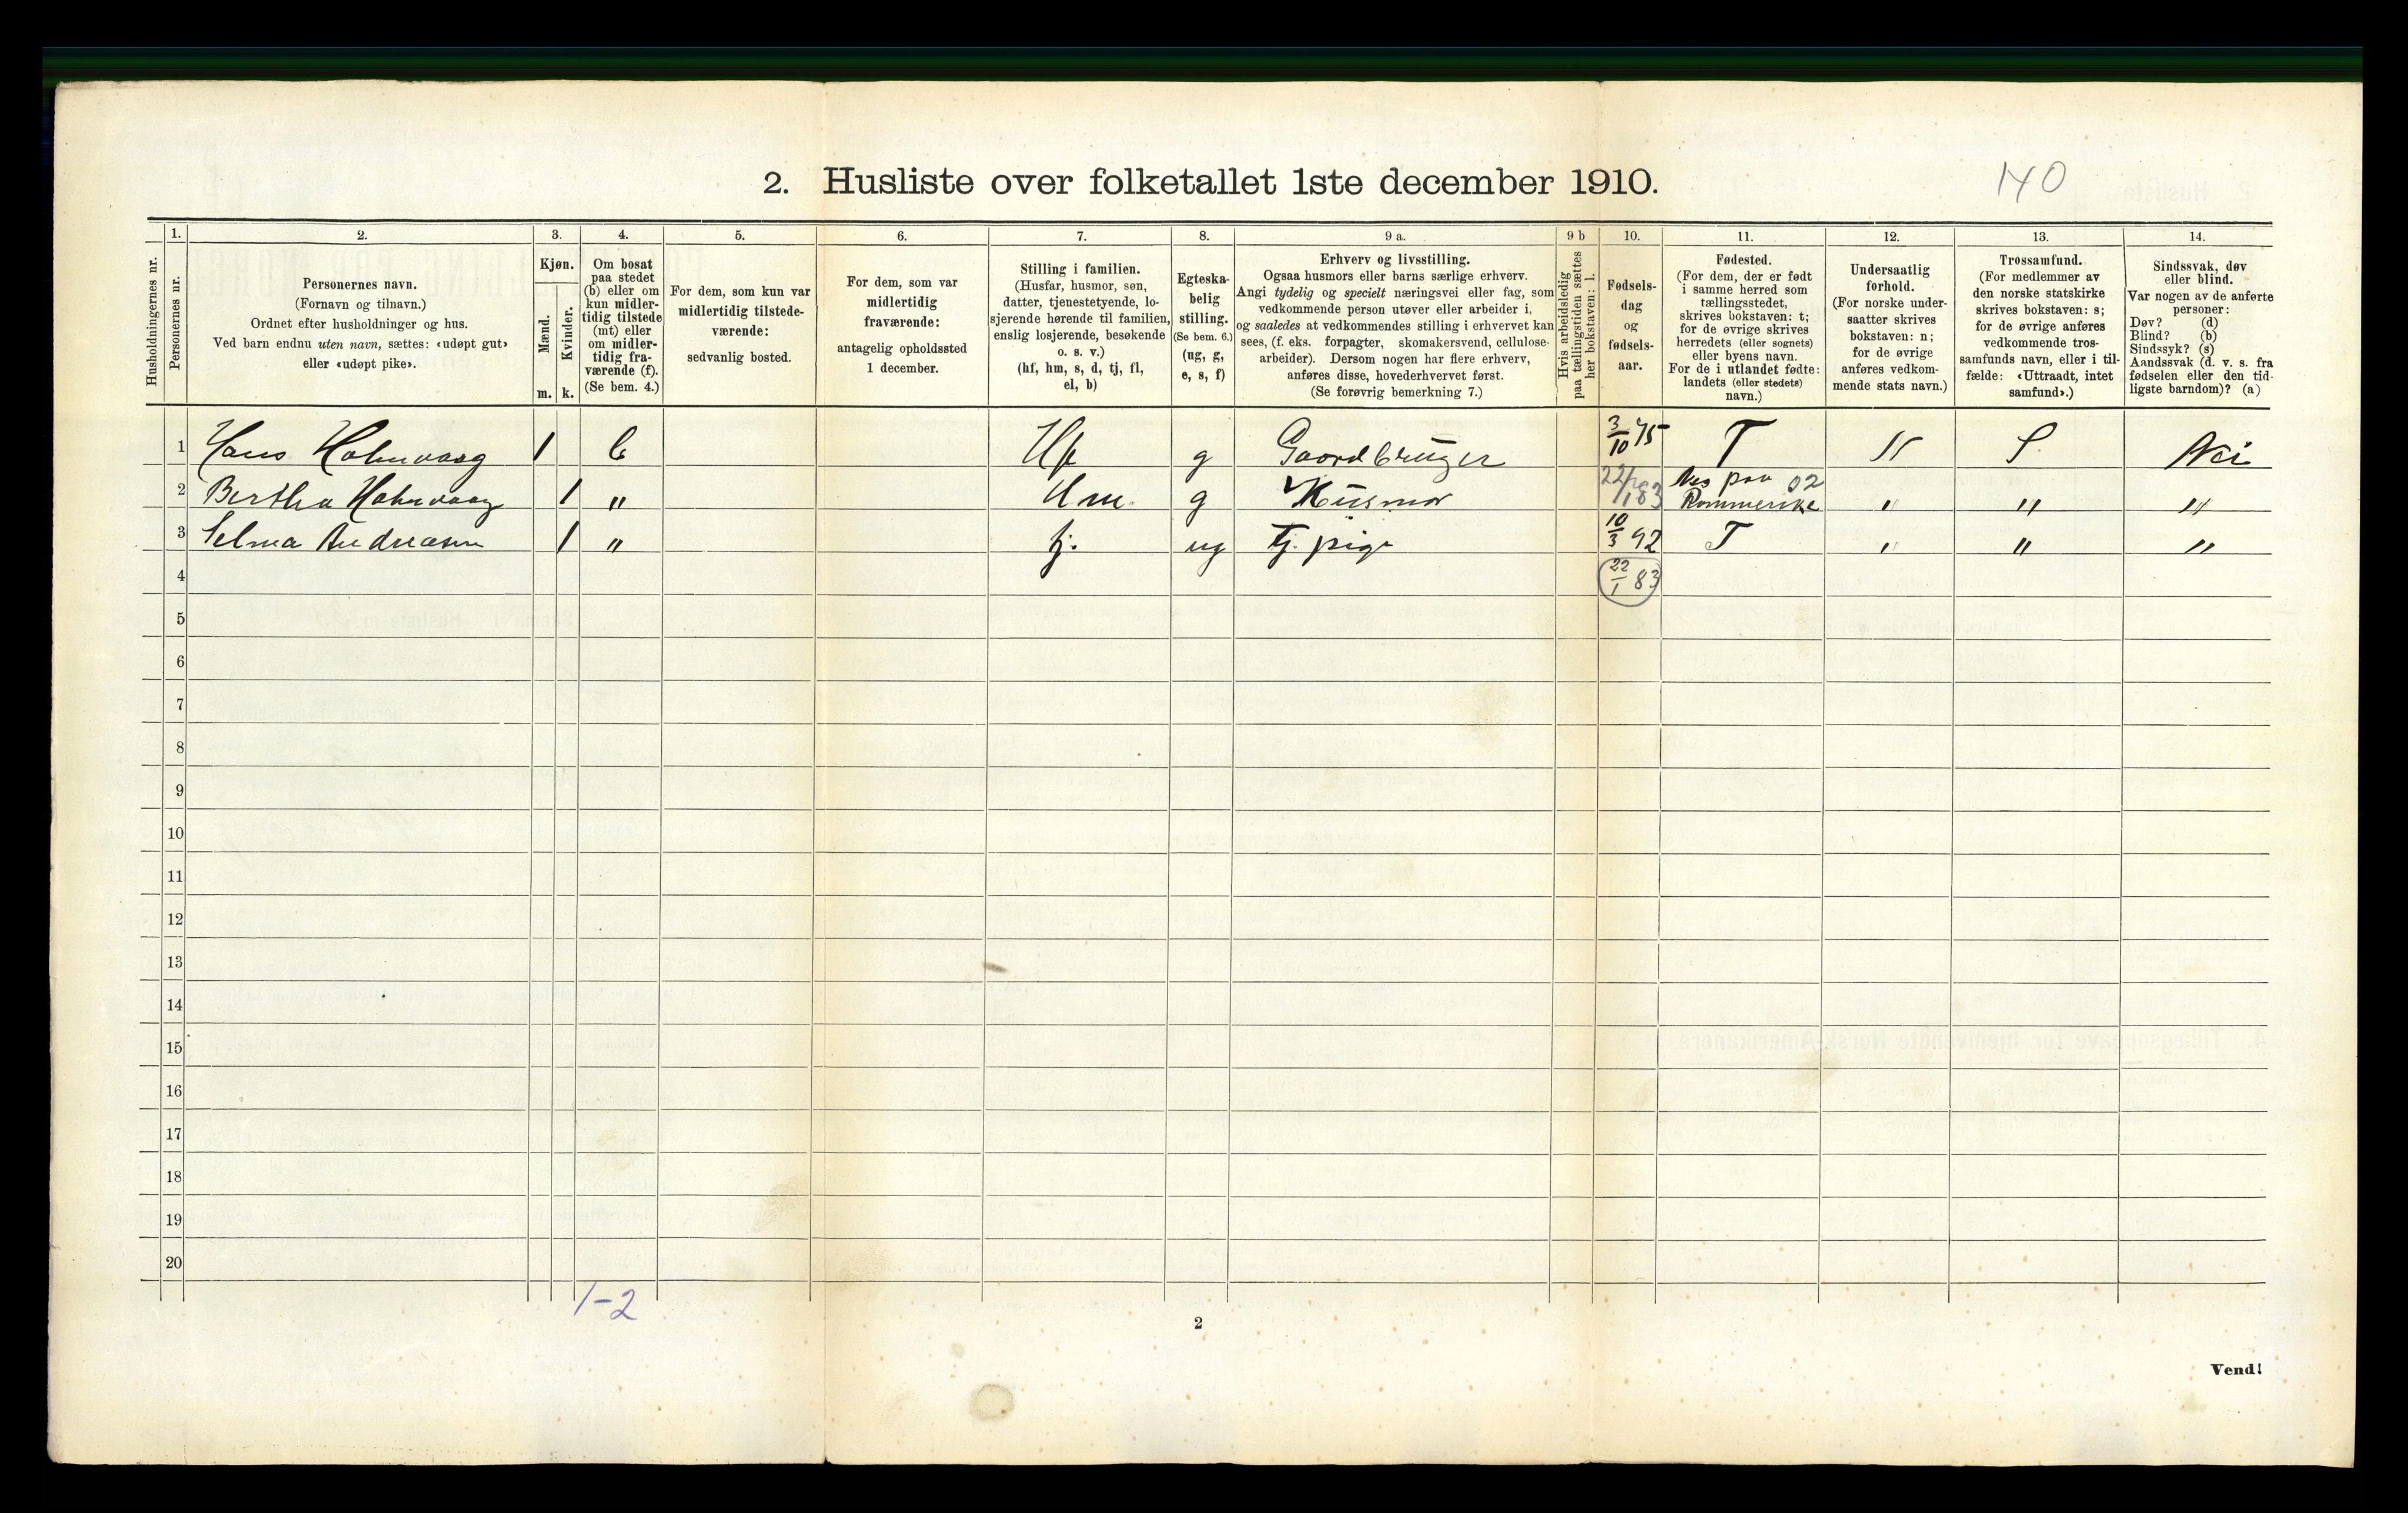 140
2. Husliste over folketallet 1ste december 1910.
Husholdningernes nr.
1.
Personernes nr.
2.
Personernes navn.
(Fornavn og tilnavn.)
Ordnet efter husholdninger og hus.
Ved barn endnu uten navn, sættes: «udøpt gut»
eller «udøpt pike».
3.
Kjøn.
Mænd.
m.
Kvinder.
k.
4.
Om bosat
paa stedet
(b) eller om
kun midler-
tidig tilstede
(mt) eller
om midler-
tidig fra-
værende (f).
(Se bem. 4.)
5.
For dem, som kun var
midlertidig tilstede-
værende:
sedvanlig bosted.
6.
For dem, som var
midlertidig
fraværende:
antagelig opholdssted
1 december.
7.
Stilling i familien.
(Husfar, husmor, søn,
datter, tjenestetyende, lo-
sjerende hørende til familien,
enslig losjerende, besøkende
o. s. v.)
(hf, hm, s, d, tj, fl,
el, b)
8.
Egteska-
belig
stilling.
(Se bem. 6.)
(ug, g,
e, s, f)
9 a.
Erhverv og livsstilling.
Ogsaa husmors eller barns særlige erhverv.
Angi tydelig og specielt næringsvei eller fag, som
vedkommende person utøver eller arbeider i,
og saaledes at vedkommendes stilling i erhvervet kan
sees, (f. eks. forpagter, skomakersvend, cellulose-
arbeider). Dersom nogen har flere erhverv,
anføres disse, hovederhvervet først.
(Se forøvrig bemerkning 7.)
9 b
Hvis arbeidsledig
paa tællingstiden sættes
her bokstaven: l.
10.
Fødsels-
dag
og
fødsels-
aar.
11.
Fødested.
(For dem, der er født
i samme herred som
tællingsstedet,
skrives bokstaven: t;
for de øvrige skrives
herredets (eller sognets)
eller byens navn.
For de i utlandet fødte:
landets (eller stedets)
navn.)
12.
Undersaatlig
forhold.
(For norske under-
saatter skrives
bokstaven: n;
for de øvrige
anføres vedkom-
mende stats navn.)
13.
Trossamfund.
(For medlemmer av
den norske statskirke
skrives bokstaven: s;
for de øvrige anføres
vedkommende tros-
samfunds navn, eller i til-
fælde: «Uttraadt, intet
samfund».)
14.
Sindssvak, døv
eller blind.
Var nogen av de anførte
personer:
Døv? (d)
Blind? (b)
Sindssyk? (s)
Aandssvak (d. v. s. fra
fødselen eller den tid-
ligste barndom)? (a)
1 Hans Holmvaag 1 b Hf g Gaardbruger 3/10 75 T N S. Nei
2 Bertha Holmvaag 1 " Hm. g Husmor 22/1 83 Nes paa 02 Rommerike " " "
3 Selma Andreasen 1 " tj. ug Tj. pige 10/3 92 T " " "
4 22/1 83
5
6
7
8
9
10
11
12
13
14
15
16
17
18
19
20
1-2
2
Vend!